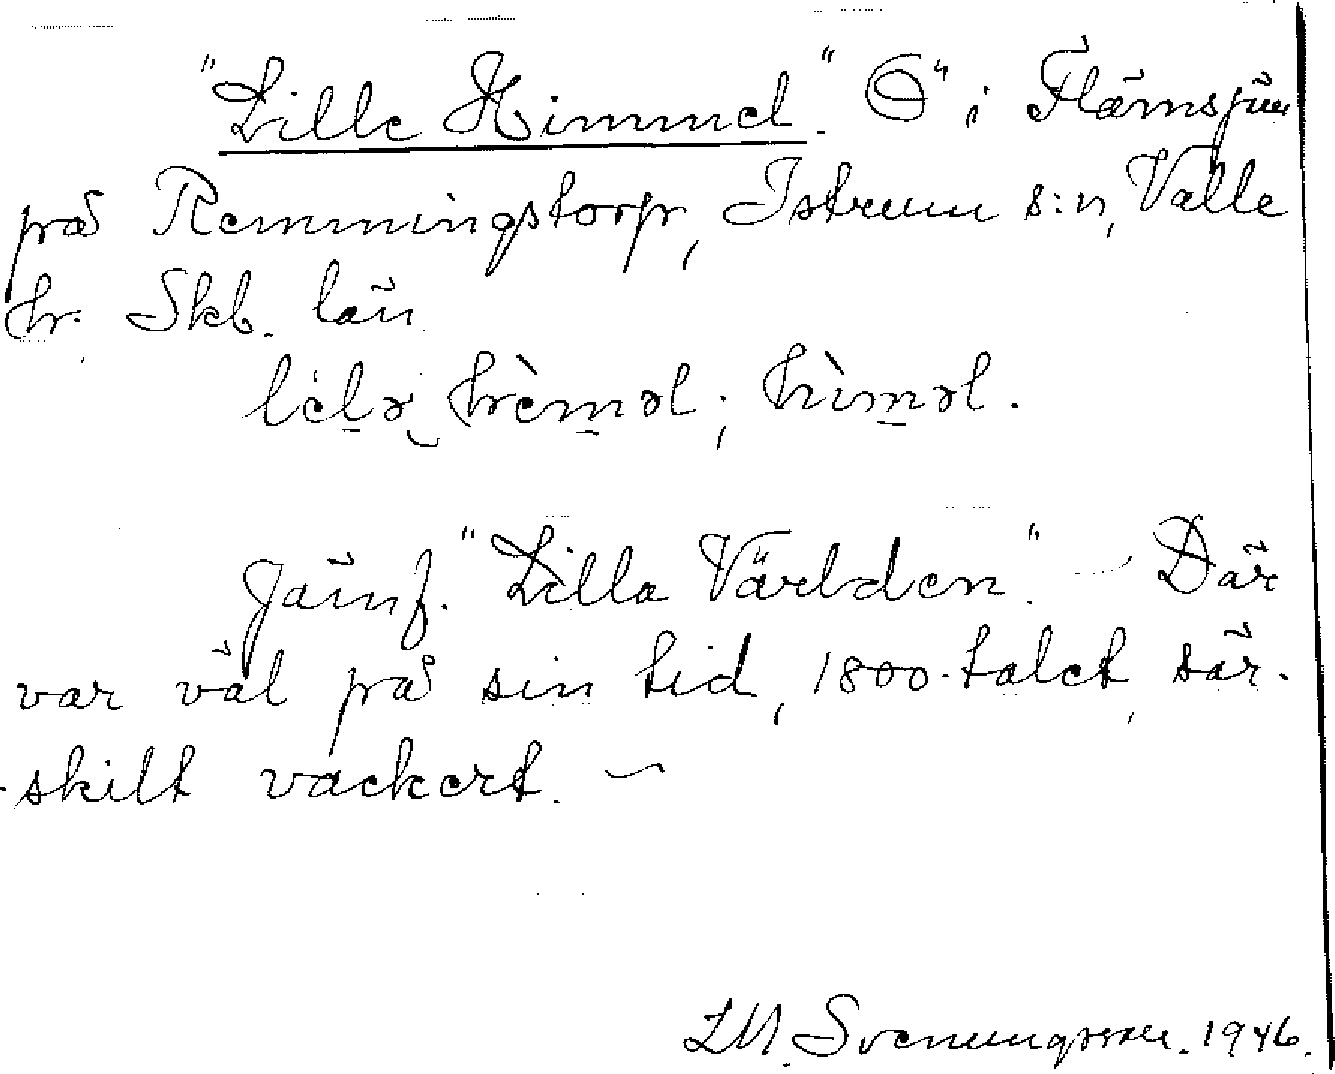 "Lille Himmel". Ö" i Flämsjön
på Remmingstorp, Istrum s:n, Valle
hr. Skb. län
lelə hèməl; hìməl.
Jämf. "Lilla Världen". – Där
var väl på sin tid, 1800-talet, sär-
skilt vackert. –
LM. Svenungsson. 1946.